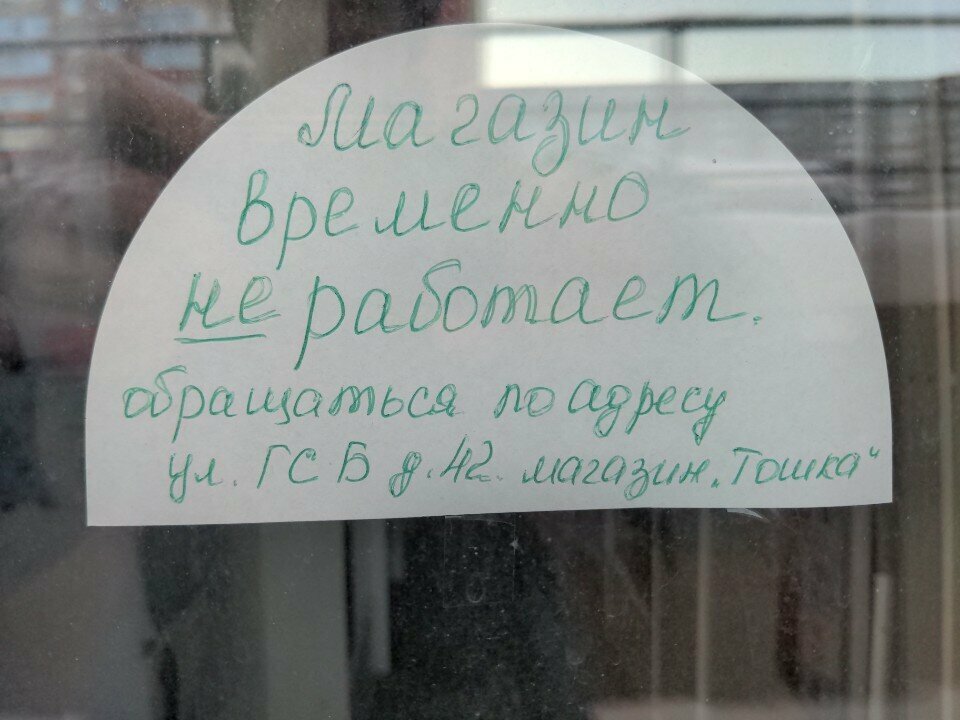 Магазин
временно
не работает.
обращаться по адресу
ул. ГСБ д.42. магазин „Тошка“